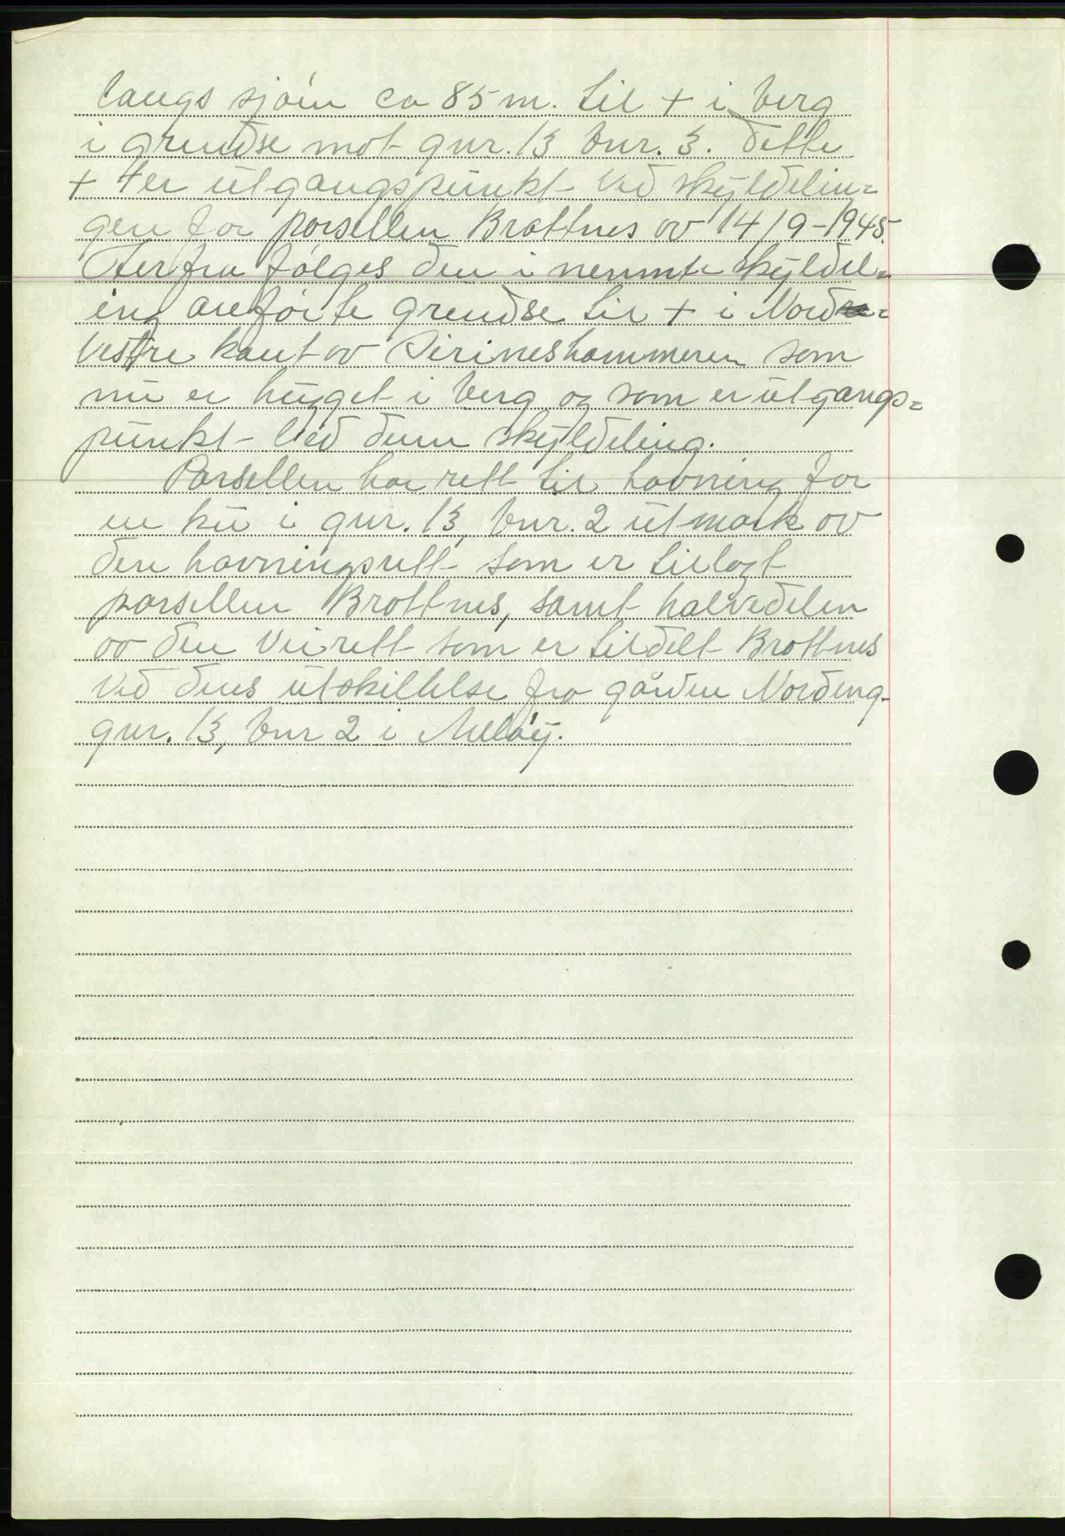 langs sjöin ca 85 m. til + i berg
i grendse mot gnr. 13 bnr. 3. Dette
+ er utgangspunkt ved skyldelin=
gen for parsellen Brattnes av 14/9-1945.
Herfra fölges den i nevnte skyldel=
ing anförte grendse til + i Nord=
vestre kant av Sirineshammeren som
nu er hugget i berg og som er utgangs=
punkt ved denn skyldeling.
Parsellen har rett til havning for
en ku i gnr. 13, bnr. 2 utmark av
den havningsrett som er tillagt
parsellen Brattnes, samt halvedelen
av den veirett som er tildelt Brattnes
ved dens utskillelse fra gården Nordeng
gnr. 13, bnr 2 i Melöy.